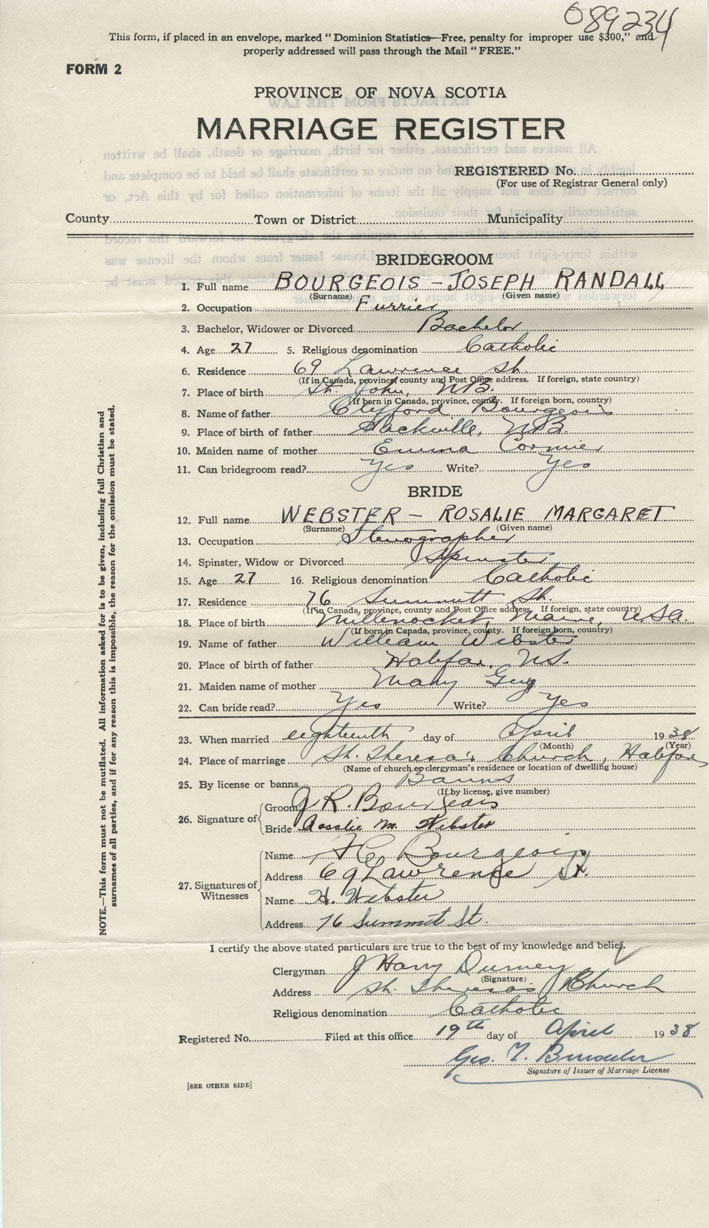 089234
This form, if placed in an envelope, marked "Dominion Statistics—Free, penalty for improper use $300," and
properly addressed will pass through the Mail "FREE."
FORM 2
PROVINCE OF NOVA SCOTIA
MARRIAGE REGISTER
REGISTERED No.
(For use of Registrar General only)
County Town or District Municipality
BRIDEGROOM
1. Full name BOURGEOIS - JOSEPH RANDALL
(Surname) (Given name)
2. Occupation Furrier
3. Bachelor, Widower or Divorced Bachelor
4. Age 27 5. Religious denomination Catholic
6. Residence 69 Lawrence St.
(If in Canada, province, county and Post Office address. If foreign, state country)
7. Place of birth St. John, N.B.
(If born in Canada, province, county. If foreign born, country)
8. Name of father Clifford Bourgeois
9. Place of birth of father Sackville, N.B
10. Maiden name of mother Emma Cormier
11. Can bridegroom read? Yes Write? Yes
BRIDE
12. Full name WEBSTER - ROSALIE MARGARET
(Surname) (Given name)
13. Occupation Stenographer
14. Spinster, Widow or Divorced Spinster
15. Age 27 16. Religious denomination Catholic
17. Residence 76 Summitt St.
(If in Canada, province, county and Post Office address. If foreign, state country)
18. Place of birth Millenocket, Maine, USA
(If born in Canada, province, county. If foreign born, country)
19. Name of father William Webster
20. Place of birth of father Halifax, N.S.
21. Maiden name of mother Mary Guy
22. Can bride read? Yes Write? Yes
23. When married eighteenth day of April 1938
(Month) (Year)
24. Place of marriage St. Theresa's Church, Halifax
(Name of church or clergyman's residence or location of dwelling house)
25. By license or banns Banns
(If by license, give number)
26. Signature of
Groom J. R. Bourgeois
Bride Rosalie M. Webster
27. Signatures of Witnesses
Name Bourgeois
Address 69 Lawrence St.
Name H. Webster
Address 76 Summit St.
I certify the above stated particulars are true to the best of my knowledge and belief.
Clergyman J Harry Durney
(Signature)
Address St. Theresas Church
Religious denomination Catholic
Registered No. Filed at this office 19th day of April 1938
Geo. T.
Signature of Issuer of Marriage License
[SEE OTHER SIDE]
NOTE.—This form must not be mutilated. All information asked for is to be given, including full Christian and
surnames of all parties, and if for any reason this is impossible, the reason for the omission must be stated.